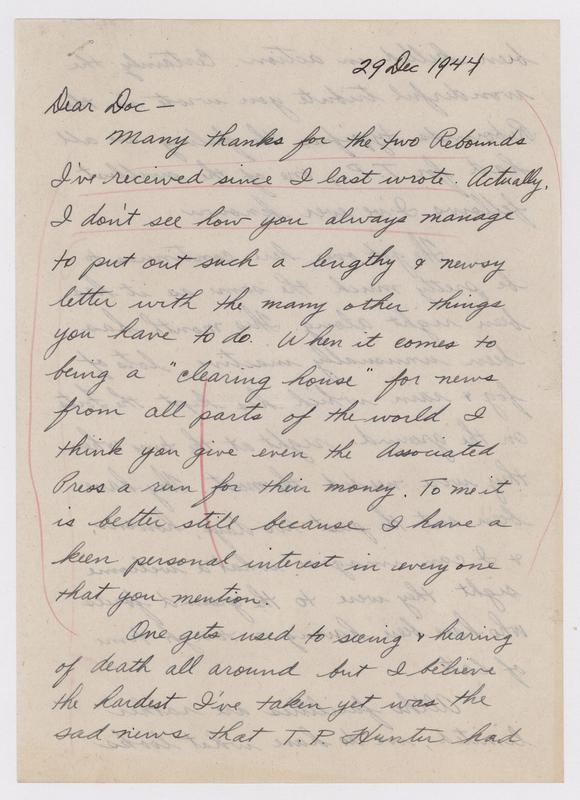 29 Dec 1944
Dear Doc—
Many thanks for the two Rebounds
I've received since I last wrote. Actually,
I don't see how you always manage
to put out such a lengthy & newsy
letter with the many other things
you have to do. When it comes to
being a "clearing house" for news
from all parts of the world I
think you give even the Associated
Press a run for their money. To me it
is better still because I have a
keen personal interest in everyone
that you mention.
One gets used to seeing & hearing
of death all around but I believe
the hardest I've taken yet was the
sad news that T.P. Hunter had